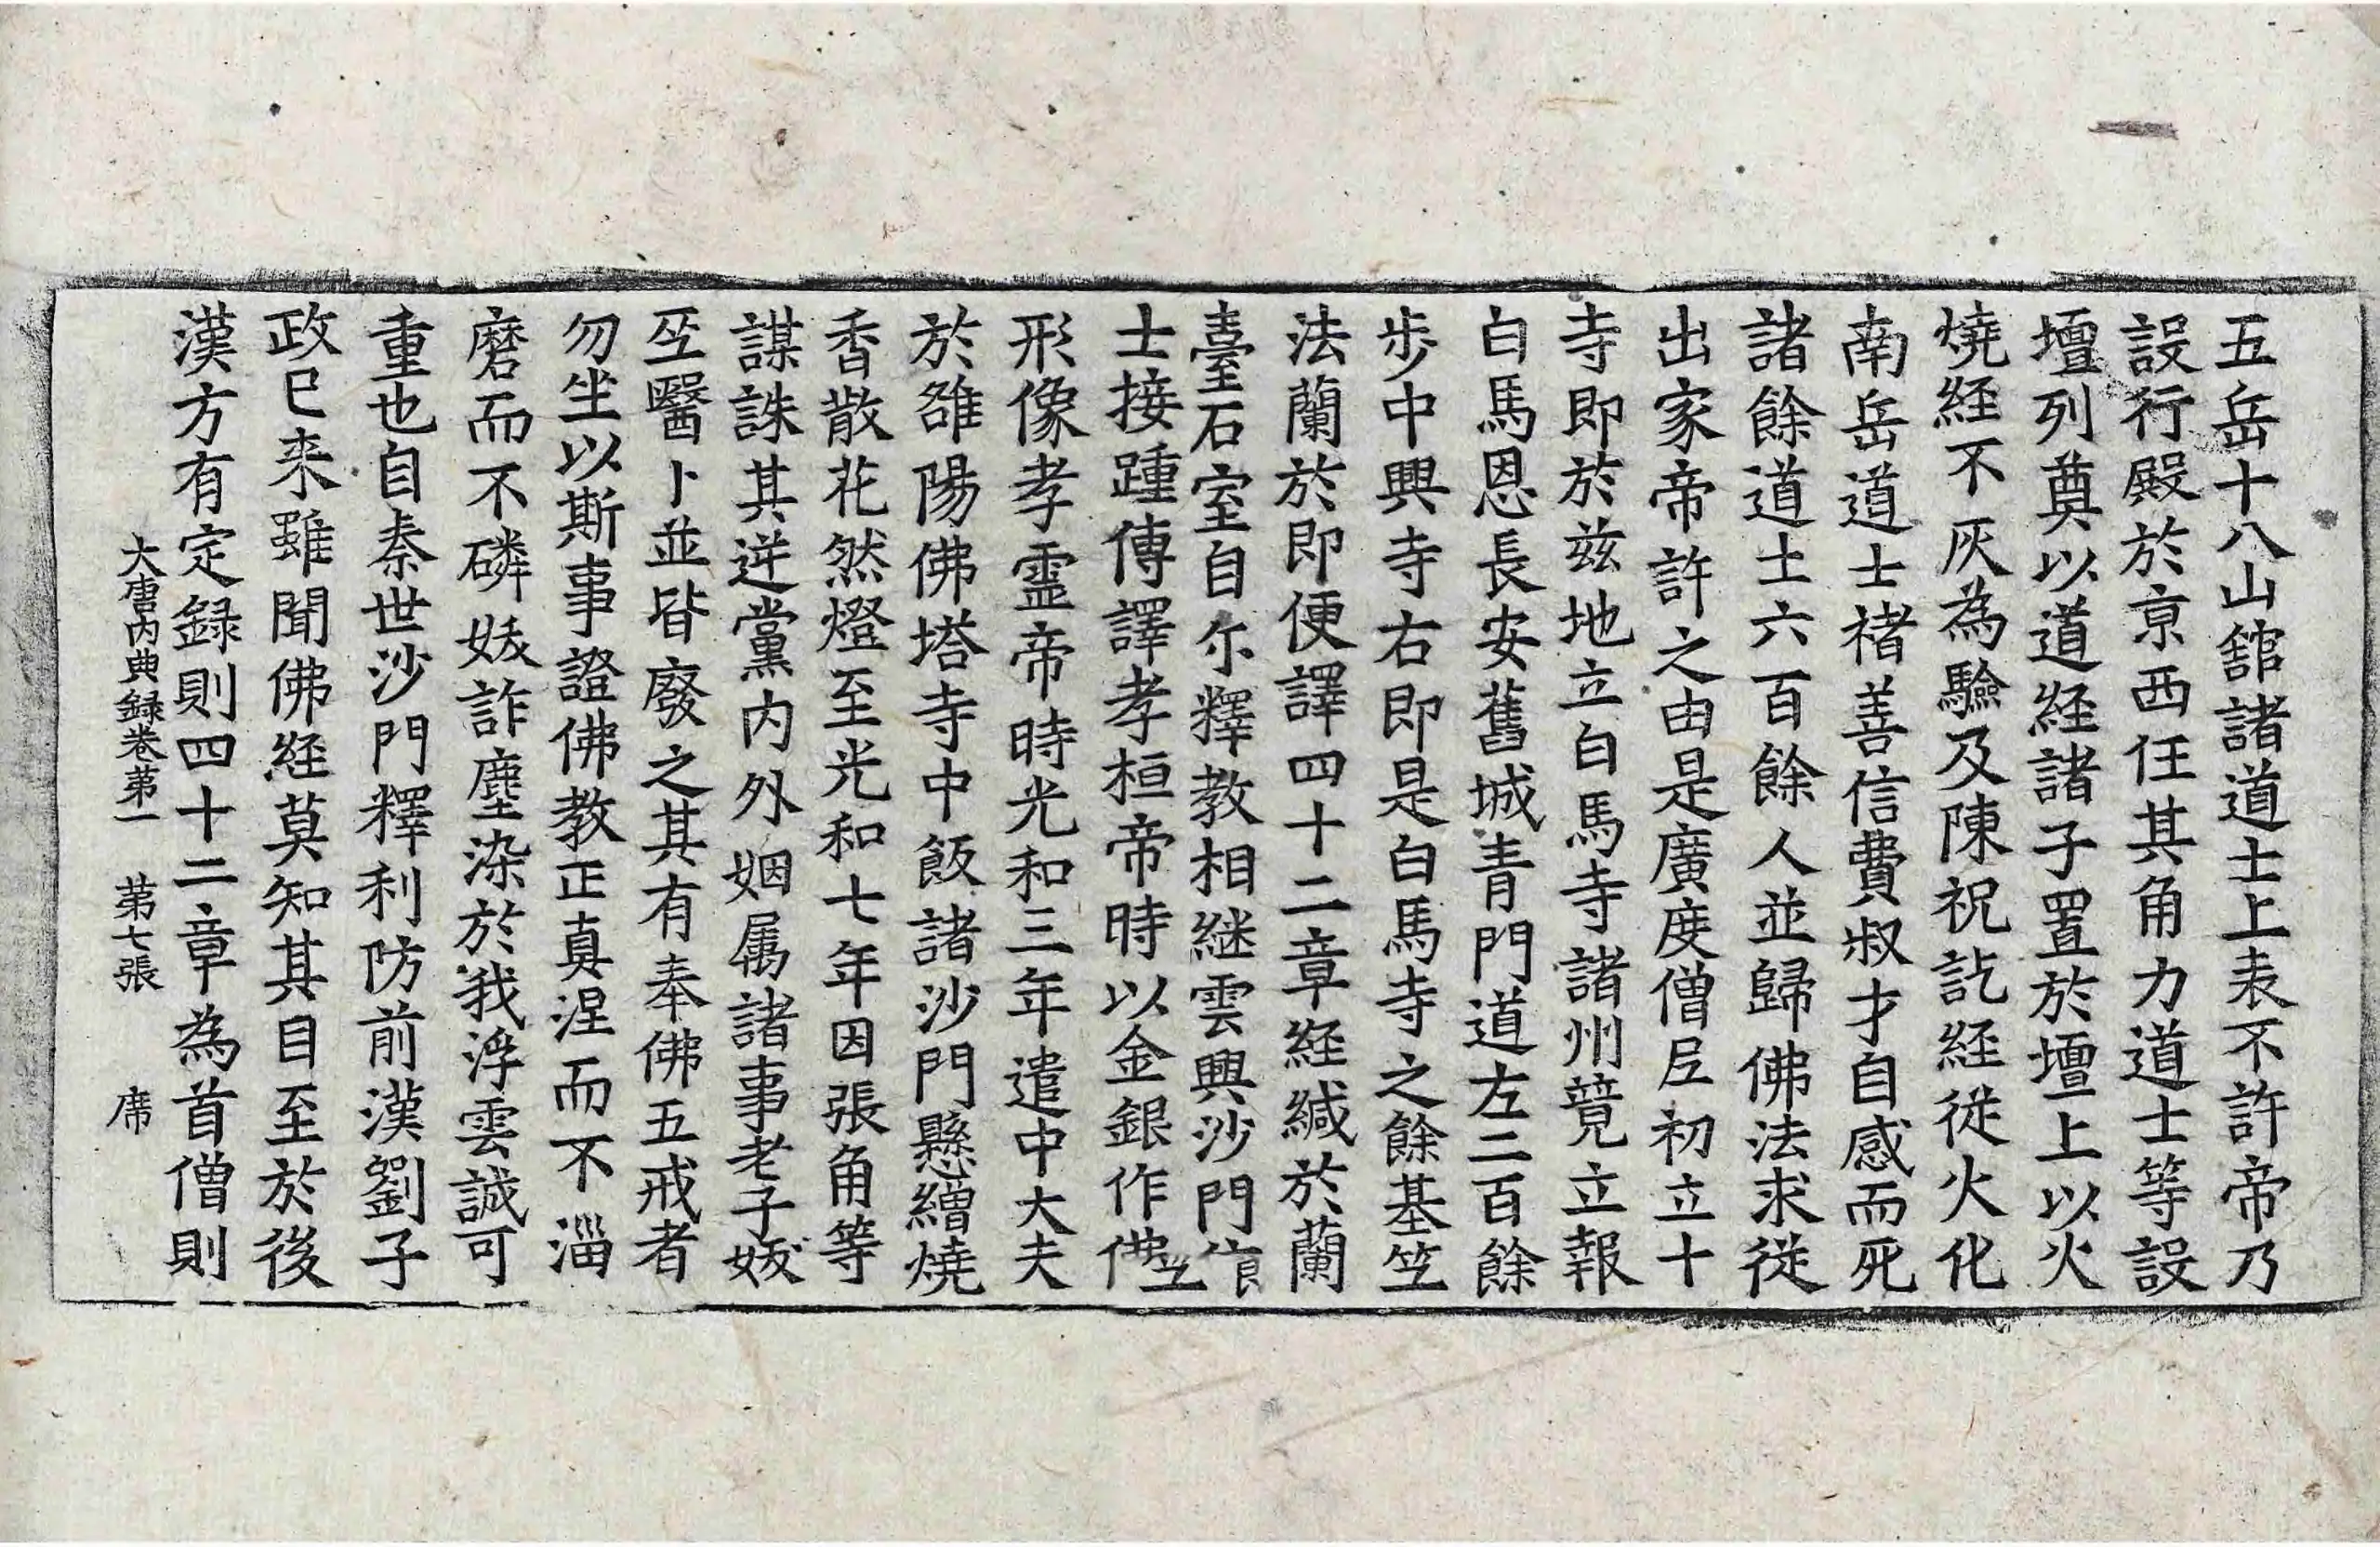 五岳十八山舘諸道士上表不許帝乃
設行殿於京西任其角力道士等設
壇列奠以道経諸子置於壇上以火
燒経不灰為驗及陳祝訖経從火化
南岳道士禇善信費叔才自感而死
諸餘道士六百餘人並歸佛法求從
出家帝許之由是廣度僧尼初立十
寺即於兹地立白馬寺諸州競立報
白馬恩長安舊城青門道左二百餘
步中興寺右即是白馬寺之餘基竺
法蘭於即便譯四十二章経緘於蘭
臺石室自尒釋教相継雲興沙門
士接踵傳譯孝桓帝時以金銀作佛
形像孝靈帝時光和三年遣中大夫
於雒陽佛塔寺中飯諸沙門懸繒燒
香散花然燈至光和七年因張角等
謀誅其逆黨内外姻属諸事老子妖
巫醫卜並皆廢之其有奉佛五戒者
勿坐以斯事證佛教正真涅而不淄
磨而不磷妖詐塵染於我浮雲誠可
重也自秦世沙門釋利防前漢劉子
政巳来雖聞佛経莫知其目至於後
漢方有定録則四十二章為首僧則
大唐内典録卷第一 第七張 席